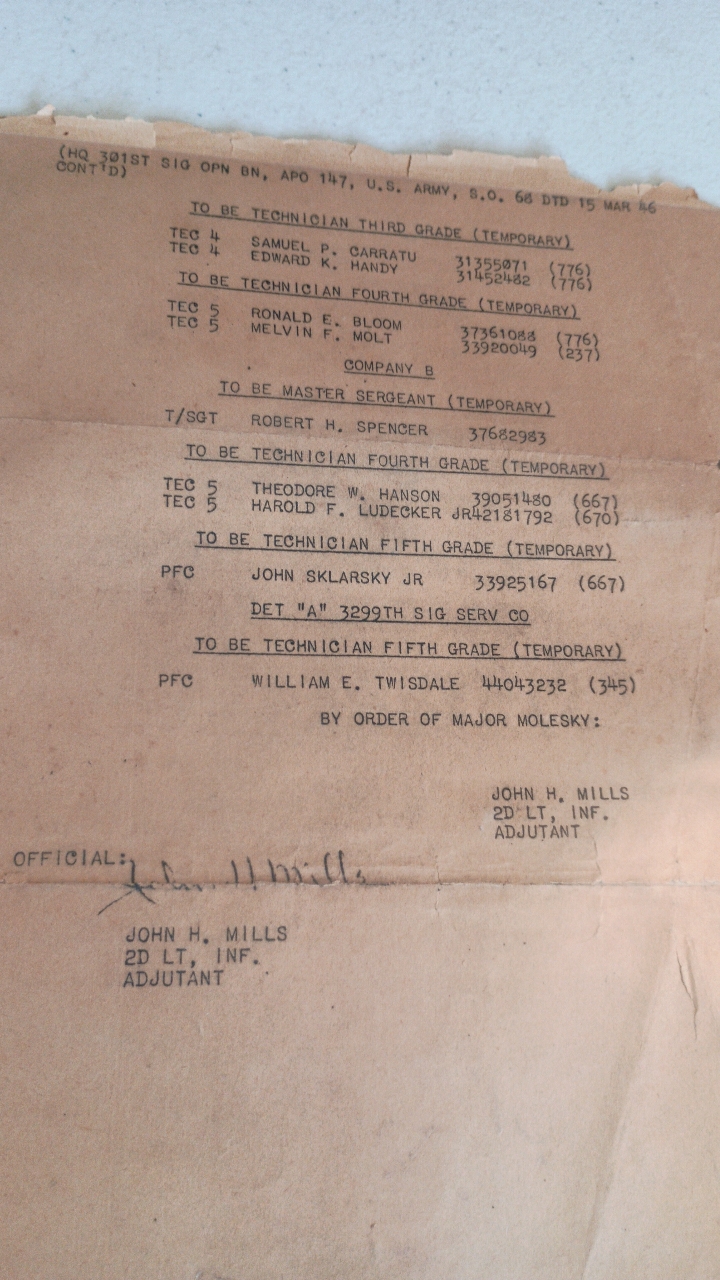 (HQ 301ST SIG OPN BN, APO 147, U.S. ARMY, S.O. 68 DTD 15 MAR 46
CONT'D)
TO BE TECHNICIAN THIRD GRADE (TEMPORARY)
TEC 4 SAMUEL P. CARRATU 31355071 (776)
TEC 4 EDWARD K. HANDY 31452482 (776)
TO BE TECHNICIAN FOURTH GRADE (TEMPORARY)
TEC 5 RONALD E. BLOOM 37361088 (776)
TEC 5 MELVIN F. MOLT 33920049 (237)
COMPANY B
TO BE MASTER SERGEANT (TEMPORARY)
T/SGT ROBERT H. SPENCER 37682983
TO BE TECHNICIAN FOURTH GRADE (TEMPORARY)
TEC 5 THEODORE W. HANSON 39051480 (667)
TEC 5 HAROLD F. LUDECKER JR42181792 (670)
TO BE TECHNICIAN FIFTH GRADE (TEMPORARY)
PFC JOHN SKLARSKY JR 33925167 (667)
DET "A" 3299TH SIG SERV CO
TO BE TECHNICIAN FIFTH GRADE (TEMPORARY)
PFC WILLIAM E. TWISDALE 44043232 (345)
BY ORDER OF MAJOR MOLESKY:
JOHN H. MILLS
2D LT, INF.
ADJUTANT
OFFICIAL:
John H Mills
JOHN H. MILLS
2D LT, INF.
ADJUTANT